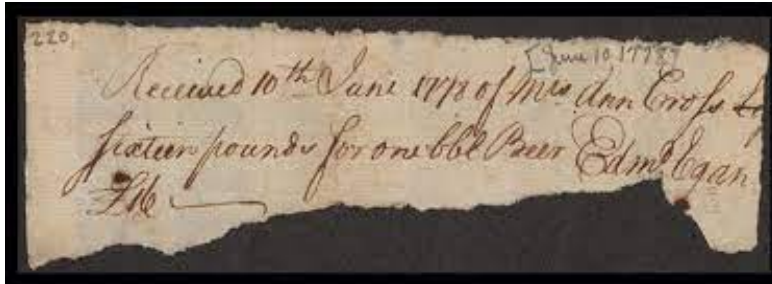 220.
[June 10, 1778]
Received 10th June 1778 of Mrs. Ann Cross
sixteen pounds for one bbl Beer Edmd. Egan
£16